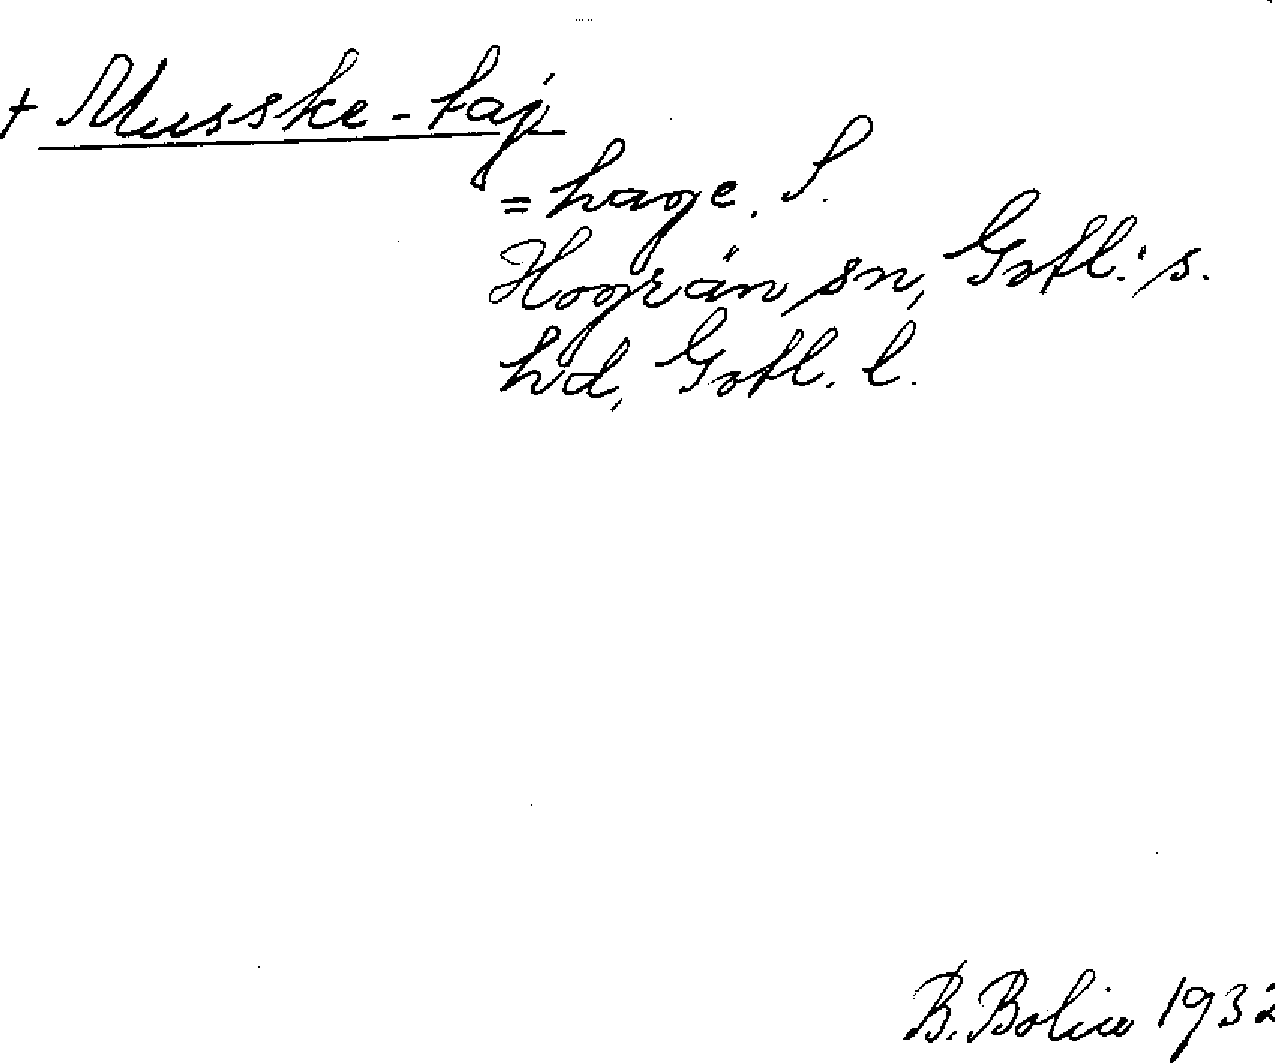 + Musske-haj
= hage. S.
Hogrän sn, Gotl:s.
hd, Gotl. l.
B. Bolin 1932